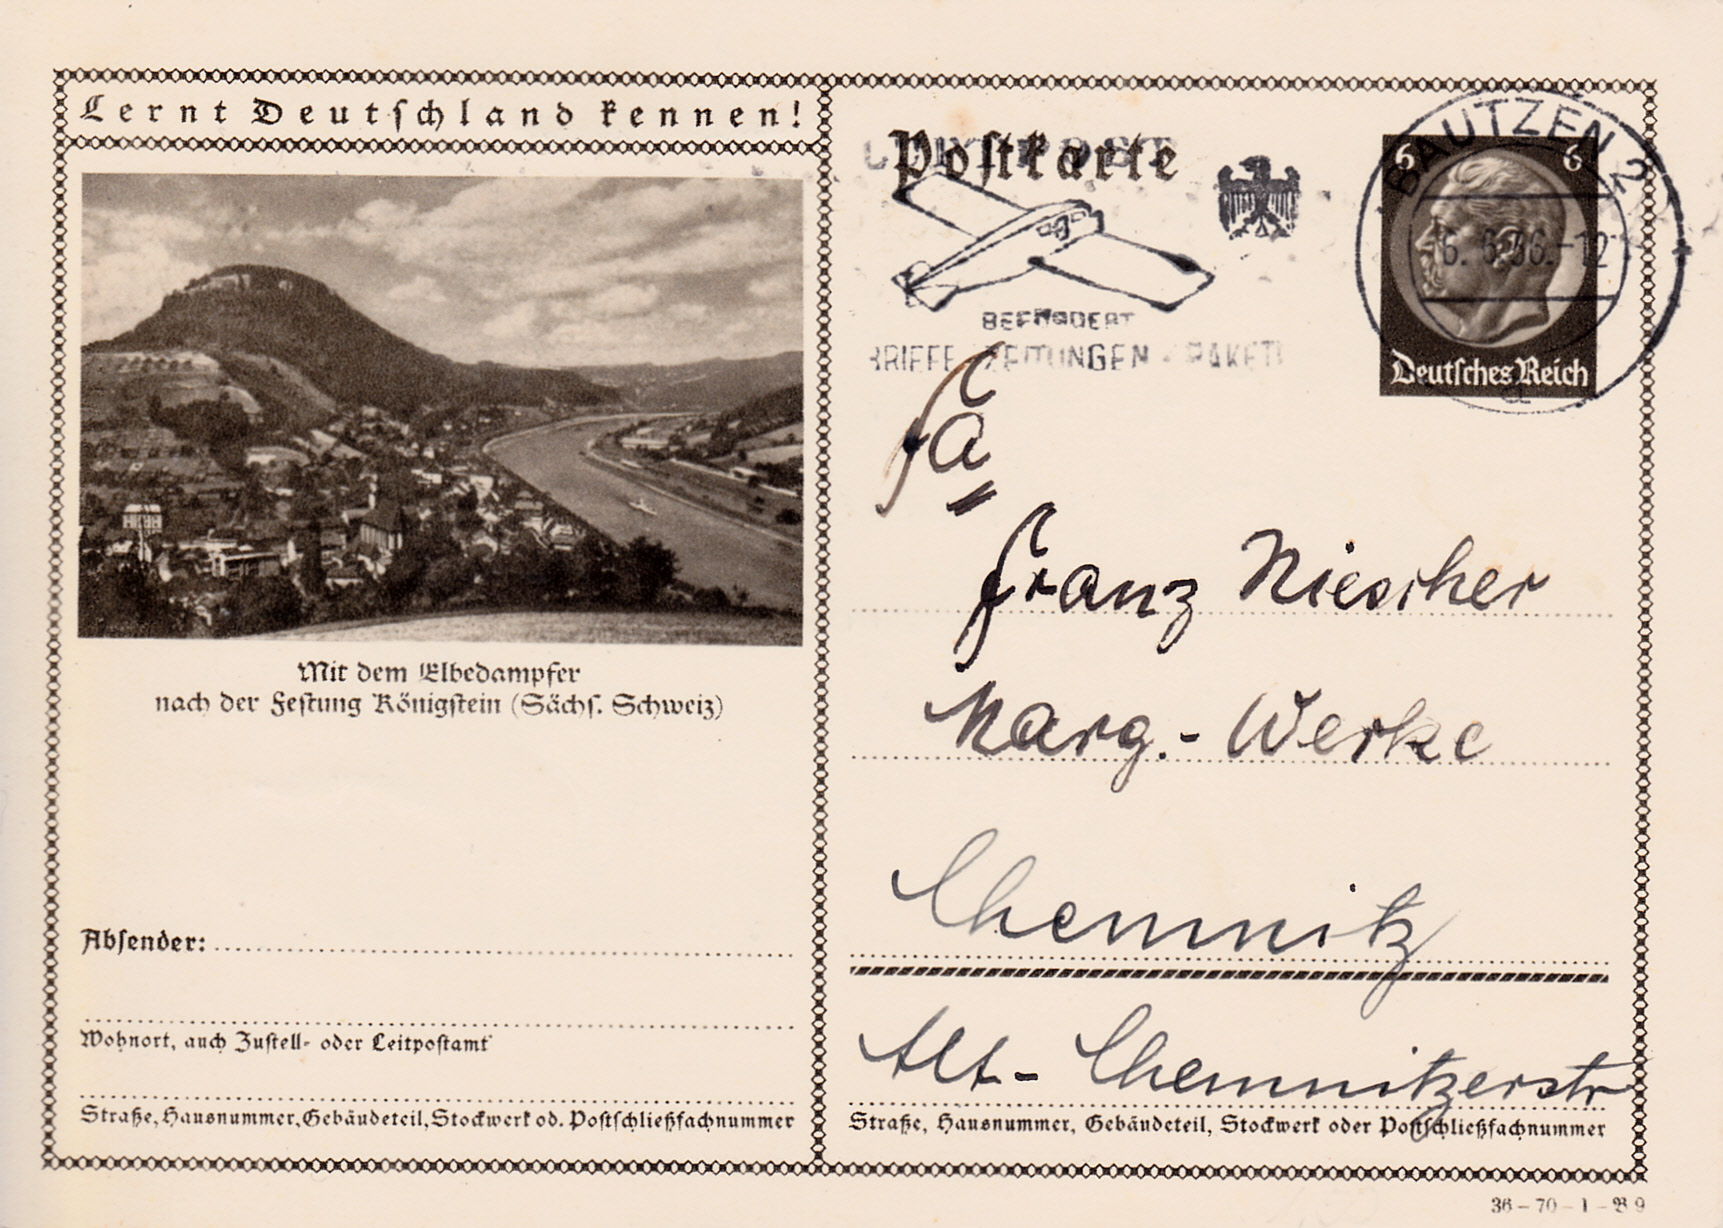 Lernt Deutschland kennen!
Mit dem Elbedampfer
nach der Festung Königstein (Sächs. Schweiz)
Absender:
Wohnort, auch Zustell- oder Leitpostamt
Straße, Hausnummer, Gebäudeteil, Stockwerk od. Postschließfachnummer
Postkarte
BEFÖRDERT
BRIEFE ZEITUNGEN - PAKETE
BAUTZEN 2
6. 6.36.-12
a
6 6
Deutsches Reich
Fa
Franz Niescher
Marg.-Werke
Chemnitz
Alt-Chemnitzerstr
Straße, Hausnummer, Gebäudeteil, Stockwerk oder Postschließfachnummer
36-70-1-B9